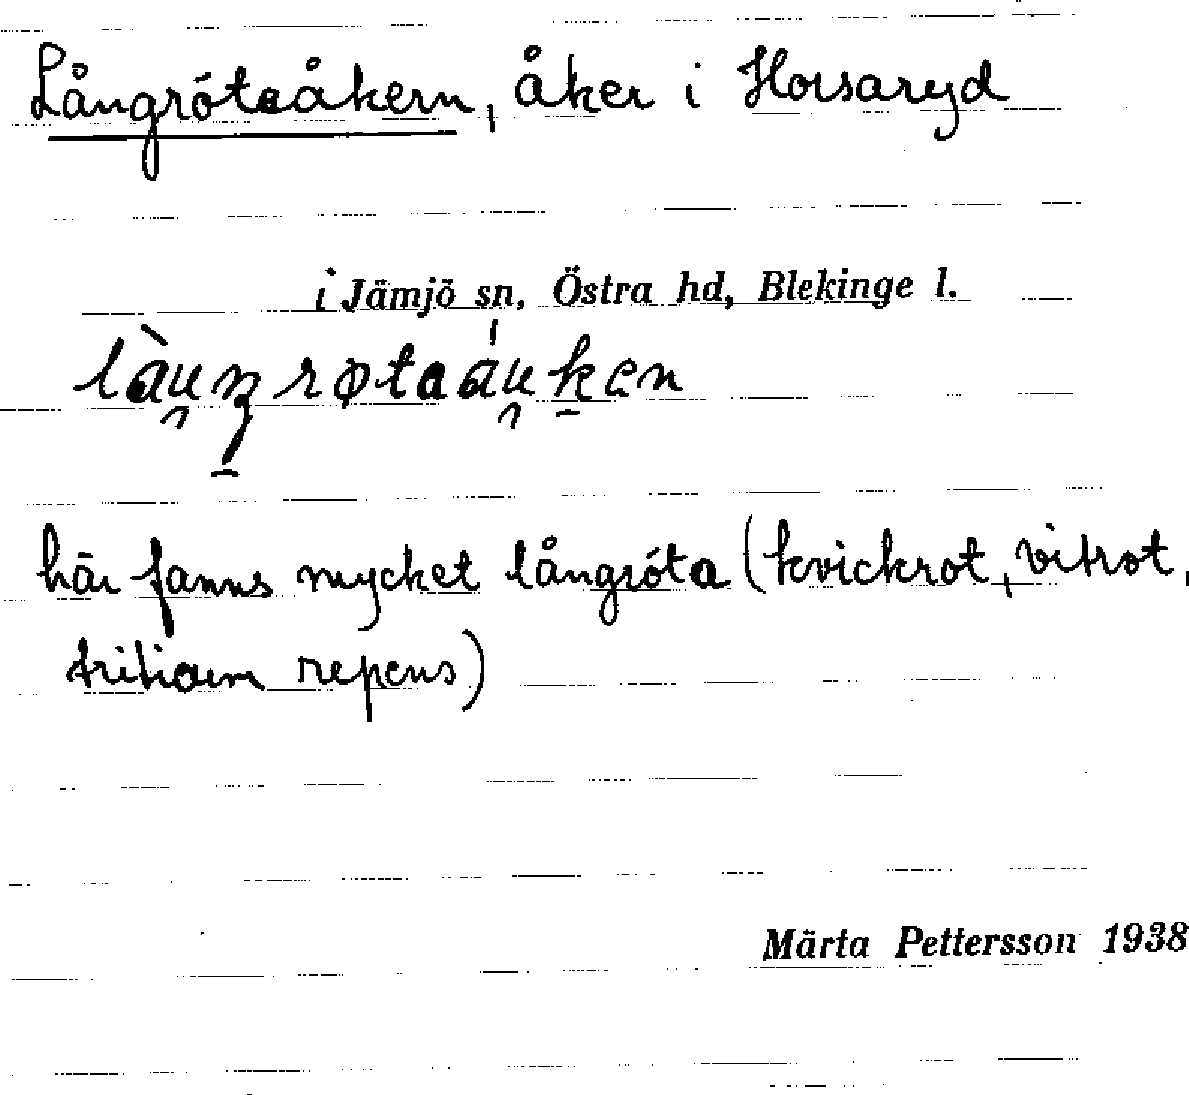 Långróteåkern, åker i Horsaryd
i Jämjö sn, Östra hd, Blekinge l.
här fanns mycket långróta (kvickrot, vitrot,
tritiam repens)
Märta Pettersson 1938